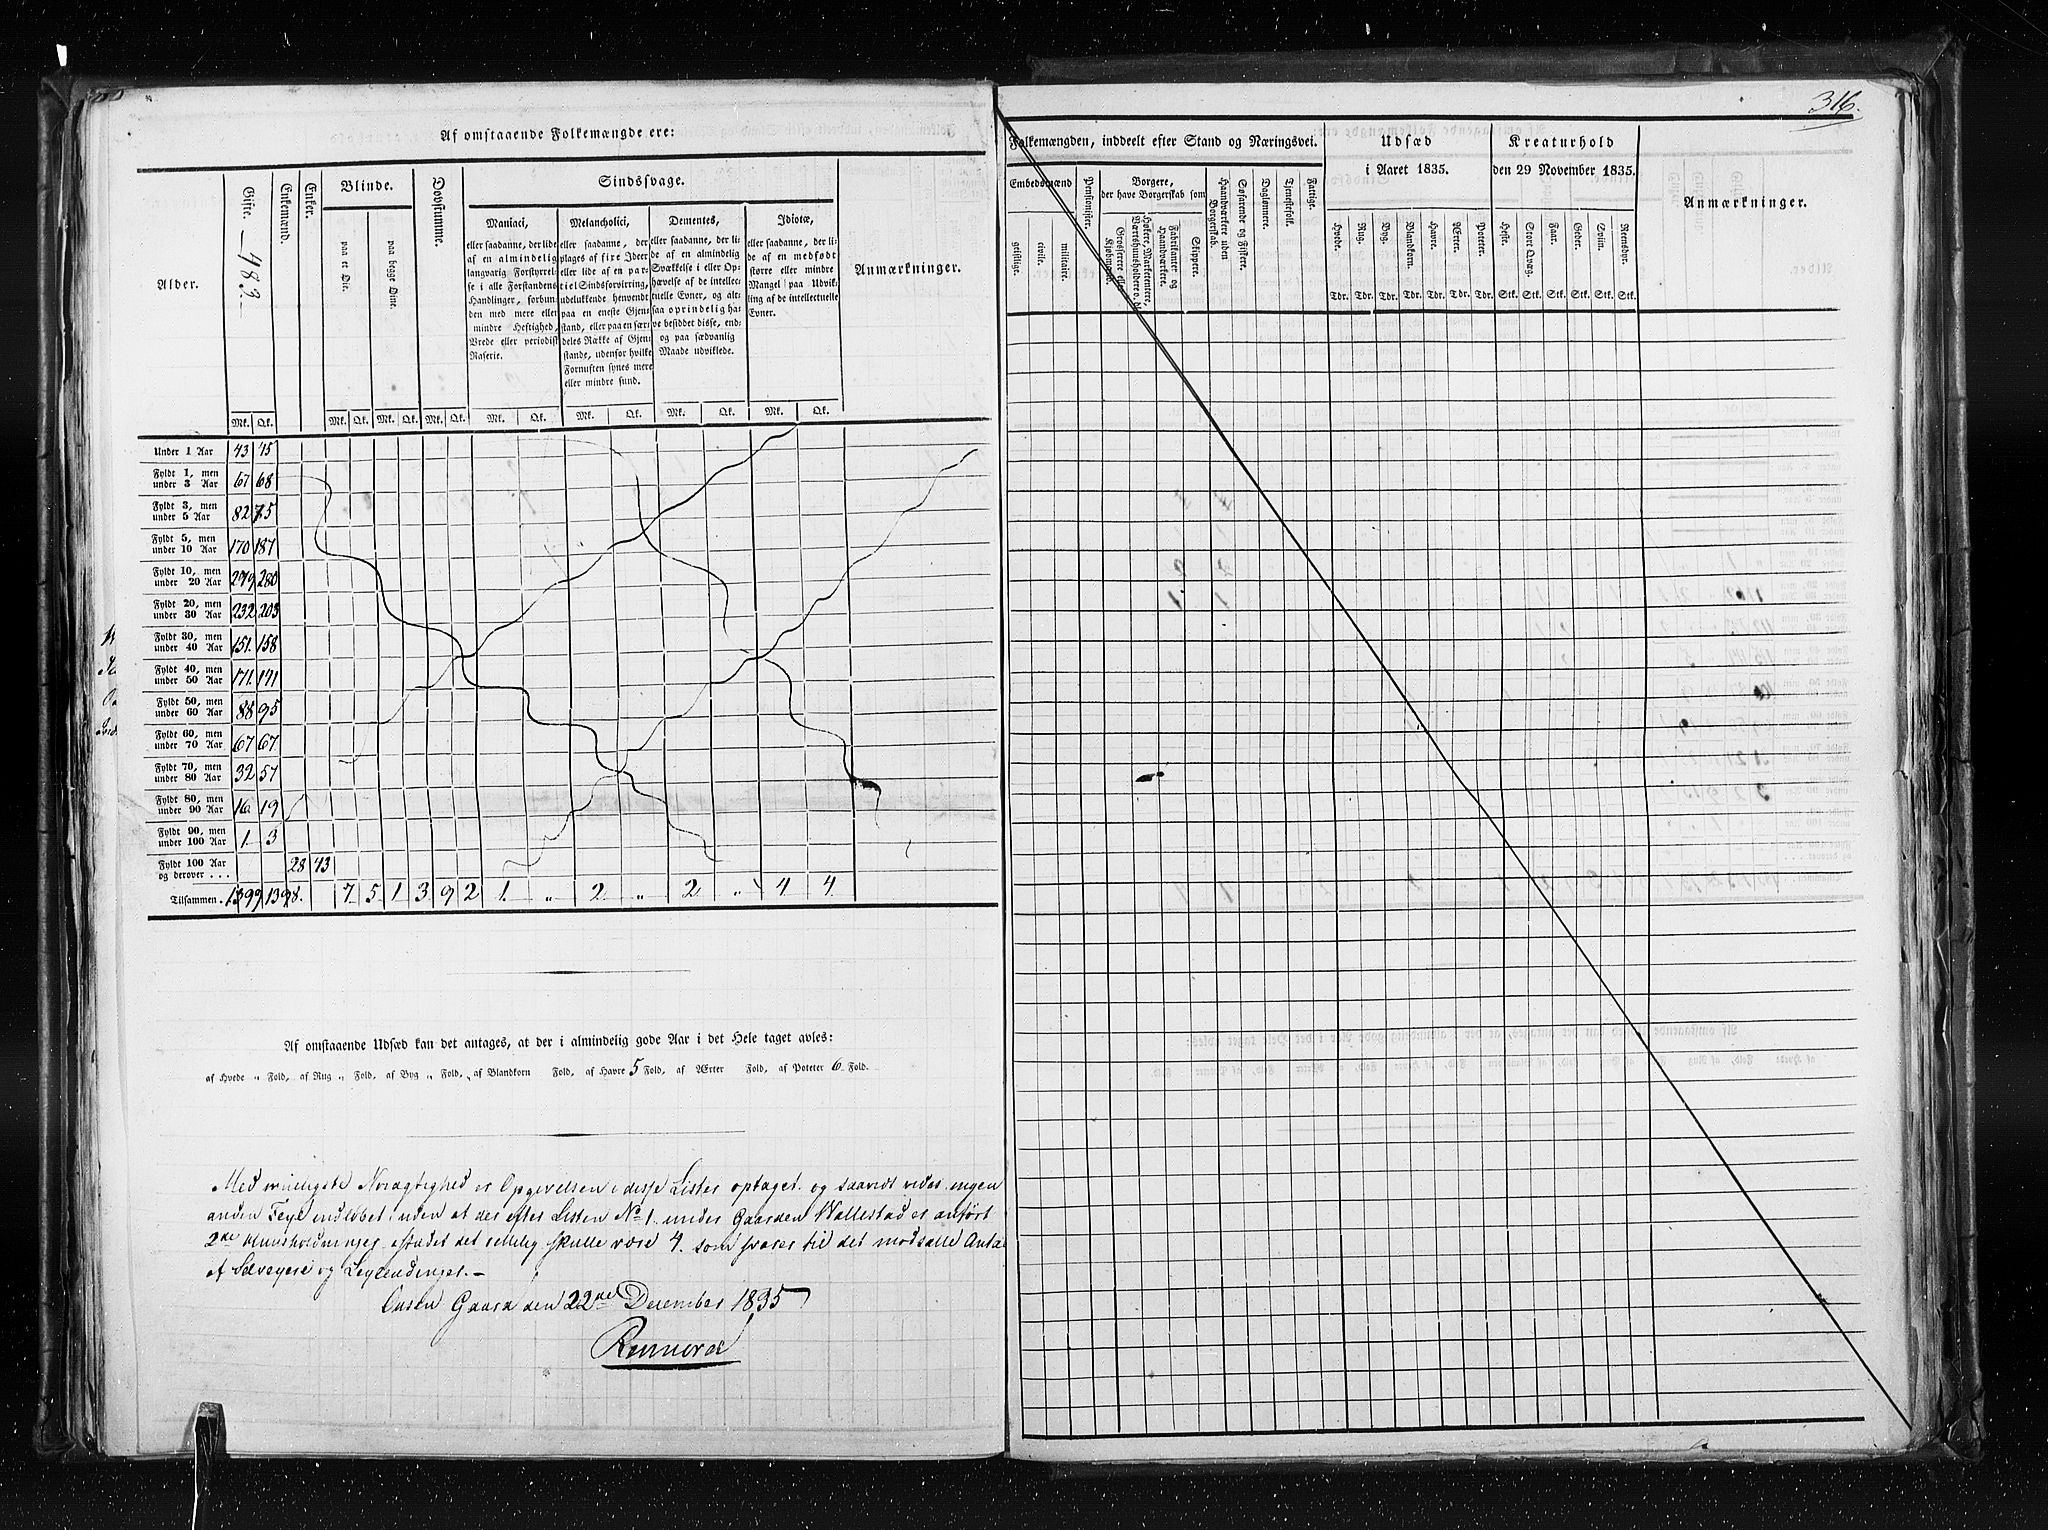 Af omstaaende Folkemængde ere:
Alder.
Gifte. 483.
Enkemænd.
Enker.
Blinde.
paa et Øie.
paa begge Øine.
Døvstumme.
Sindssvage.
Maniaci,
eller saadanne, der lide
af en almindelig
langvarig Forstyrrel-
se i alle Forstandens
Handlinger, forbun-
den med mere eller
mindre Heftighed,
Vrede eller periodisk
Raserie.
Melancholici,
eller saadanne, der
plages af fixe Ideer
eller lide af en par-
tiel Sindsforvirring,
udelukkende henvendt
paa en eneste Gjen-
stand, eller paa en sær-
deles Række af Gjen-
stande, udenfor hvilke
Fornuften synes mere
eller mindre sund.
Dementes,
eller saadanne, der li-
de af en almindelig
Svækkelse i eller Op-
hævelse af de intellec-
tuelle Evner, og ale-
saa oprindelig ha-
ve besiddet disse, end-
og paa sædvanlig
Maade udviklede.
Idiotæ,
eller saadanne, der li-
de af en medfødt
større eller mindre
Mangel paa Udvik-
ling af de intellectuelle
Evner.
Anmærkninger.
Mk. Qk. Mk. Qk. Mk. Qk. Mk. Qk. Mk. Qk. Mk. Qk. Mk. Qk. Mk. Qk.
Under 1 Aar 43 45
Fyldt 1, men
under 3 Aar 67 68
Fyldt 3, men
under 5 Aar 82 75
Fyldt 5, men
under 10 Aar 170 187
Fyldt 10, men
under 20 Aar 279 280
Fyldt 20, men
under 30 Aar 232 203
Fyldt 30, men
under 40 Aar 151. 158
Fyldt 40, men
under 50 Aar 171. 141
Fyldt 50, men
under 60 Aar 88 95
Fyldt 60, men
under 70 Aar 67 67
Fyldt 70, men
under 80 Aar 32 57
Fyldt 80, men
under 90 Aar 16 19
Fyldt 90, men
under 100 Aar 1 3
Fyldt 100 Aar
og derover . . . 28 43
Tilsammen. 1399 1398. 7 5 1 3 9 2 1. „ 2 „ 2 „ 4 4
Af omstaaende Udsæd kan det antages, at der i almindelig gode Aar i det Hele taget avles:
af Hvede „ Fold, af Rug „ Fold, af Byg „ Fold, af Blandkorn Fold, af Havre 5 Fold, af Ærter Fold, af Poteter 6 Fold.
Med mueligste Nøiagtighed er Opgivelsen i disse Lister optaget og saavidt vides ingen
anden Feyl indløbet uden at der efter Listen No 1. under Gaarden Wallestad er anført
2de Huusholdninger istædet det rettelig skulle være 4. som svarer til det modsatte Antal
af Selveyere og Leylendinger.
Gaard den 22de December 1835
316.
Folkemængden, inddeelt efter Stand og Næringsvei.
Embedsmænd
geistlige.
civile.
militaire.
Pensionister.
Borgere,
der have Borgerskab som
Grosserere eller
Kjøbmænd.
Høkere, Marketentere,
Værtshuusholdere o. dl.
Fabrikanter og
Haandværkere.
Skippere.
Haandværkere uden
Borgerskab.
Søfarende og Fiskere.
Daglønnere.
Tjenestefolk.
Fattige.
Udsæd
i Aaret 1835.
Hvede. Rug. Byg. Blandkorn. Havre. Ærter. Poteter.
Tdr. Tdr. Tdr. Tdr. Tdr. Tdr. Tdr.
Kreaturhold
den 29 November 1835.
Heste. Stort Qvæg. Faar. Geder. Sviin. Reensdyr.
Stk. Stk. Stk. Stk. Stk. Stk.
Anmærkninger.